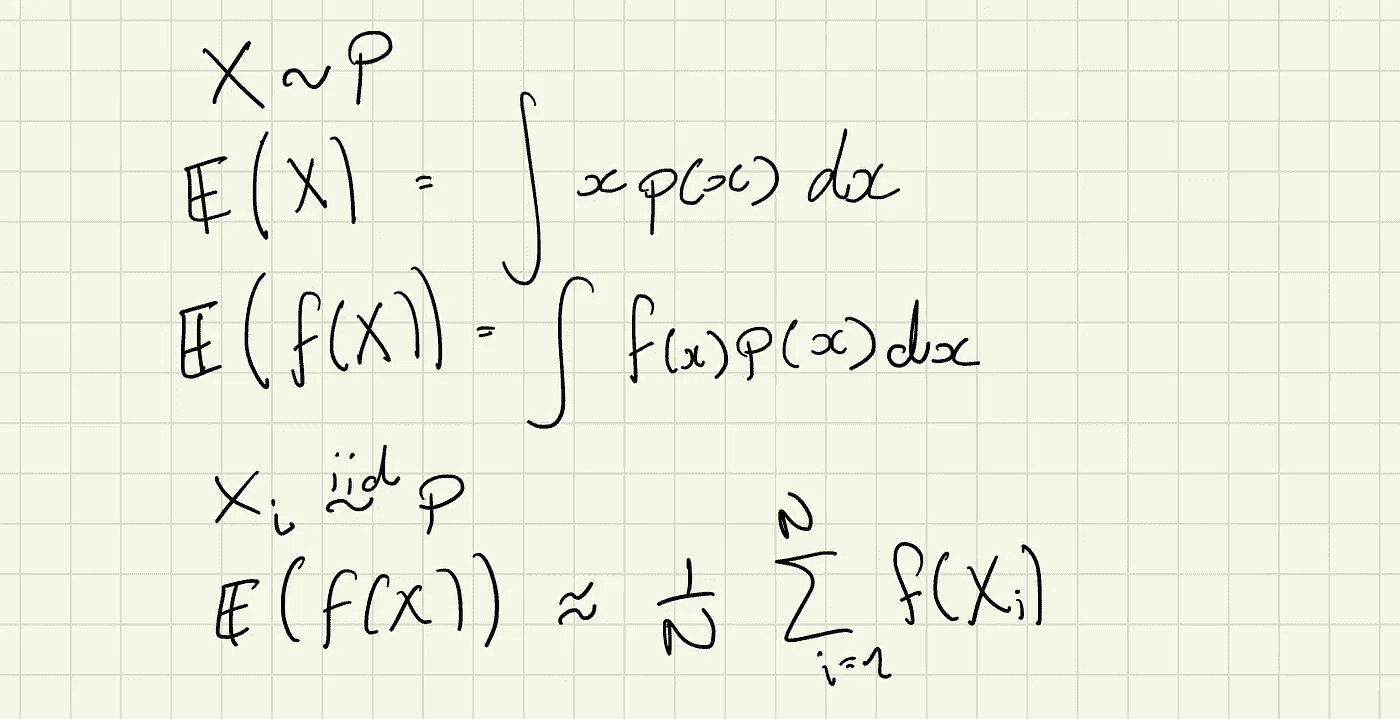 X ~ p
𝔼(X) = ∫ x p(x) dx
𝔼(f(X)) = ∫ f(x) p(x) dx
X_i iid ~ p
𝔼(f(X)) ≈ 1/N ∑_{i=1}^{N} f(X_i)